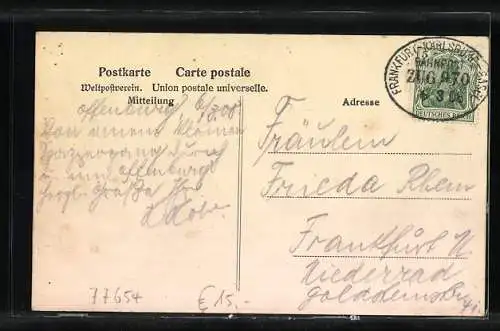 Postkarte Carte postale
Weltpostverein. Union postale universelle.
Mitteilung
Adresse
FRANKFURT-KARLSRUHE
BAHNPOST
ZUG 970
6 3 08
DEUTSCHES REICH
Offenburg 6/3 08
Von einem kleinen
Spaziergang durch
u. um Offenburg
herzl. Grüße Ihr
Fräulein
Frieda Rhein
Frankfurt
Niederrad
77654
€ 15.-